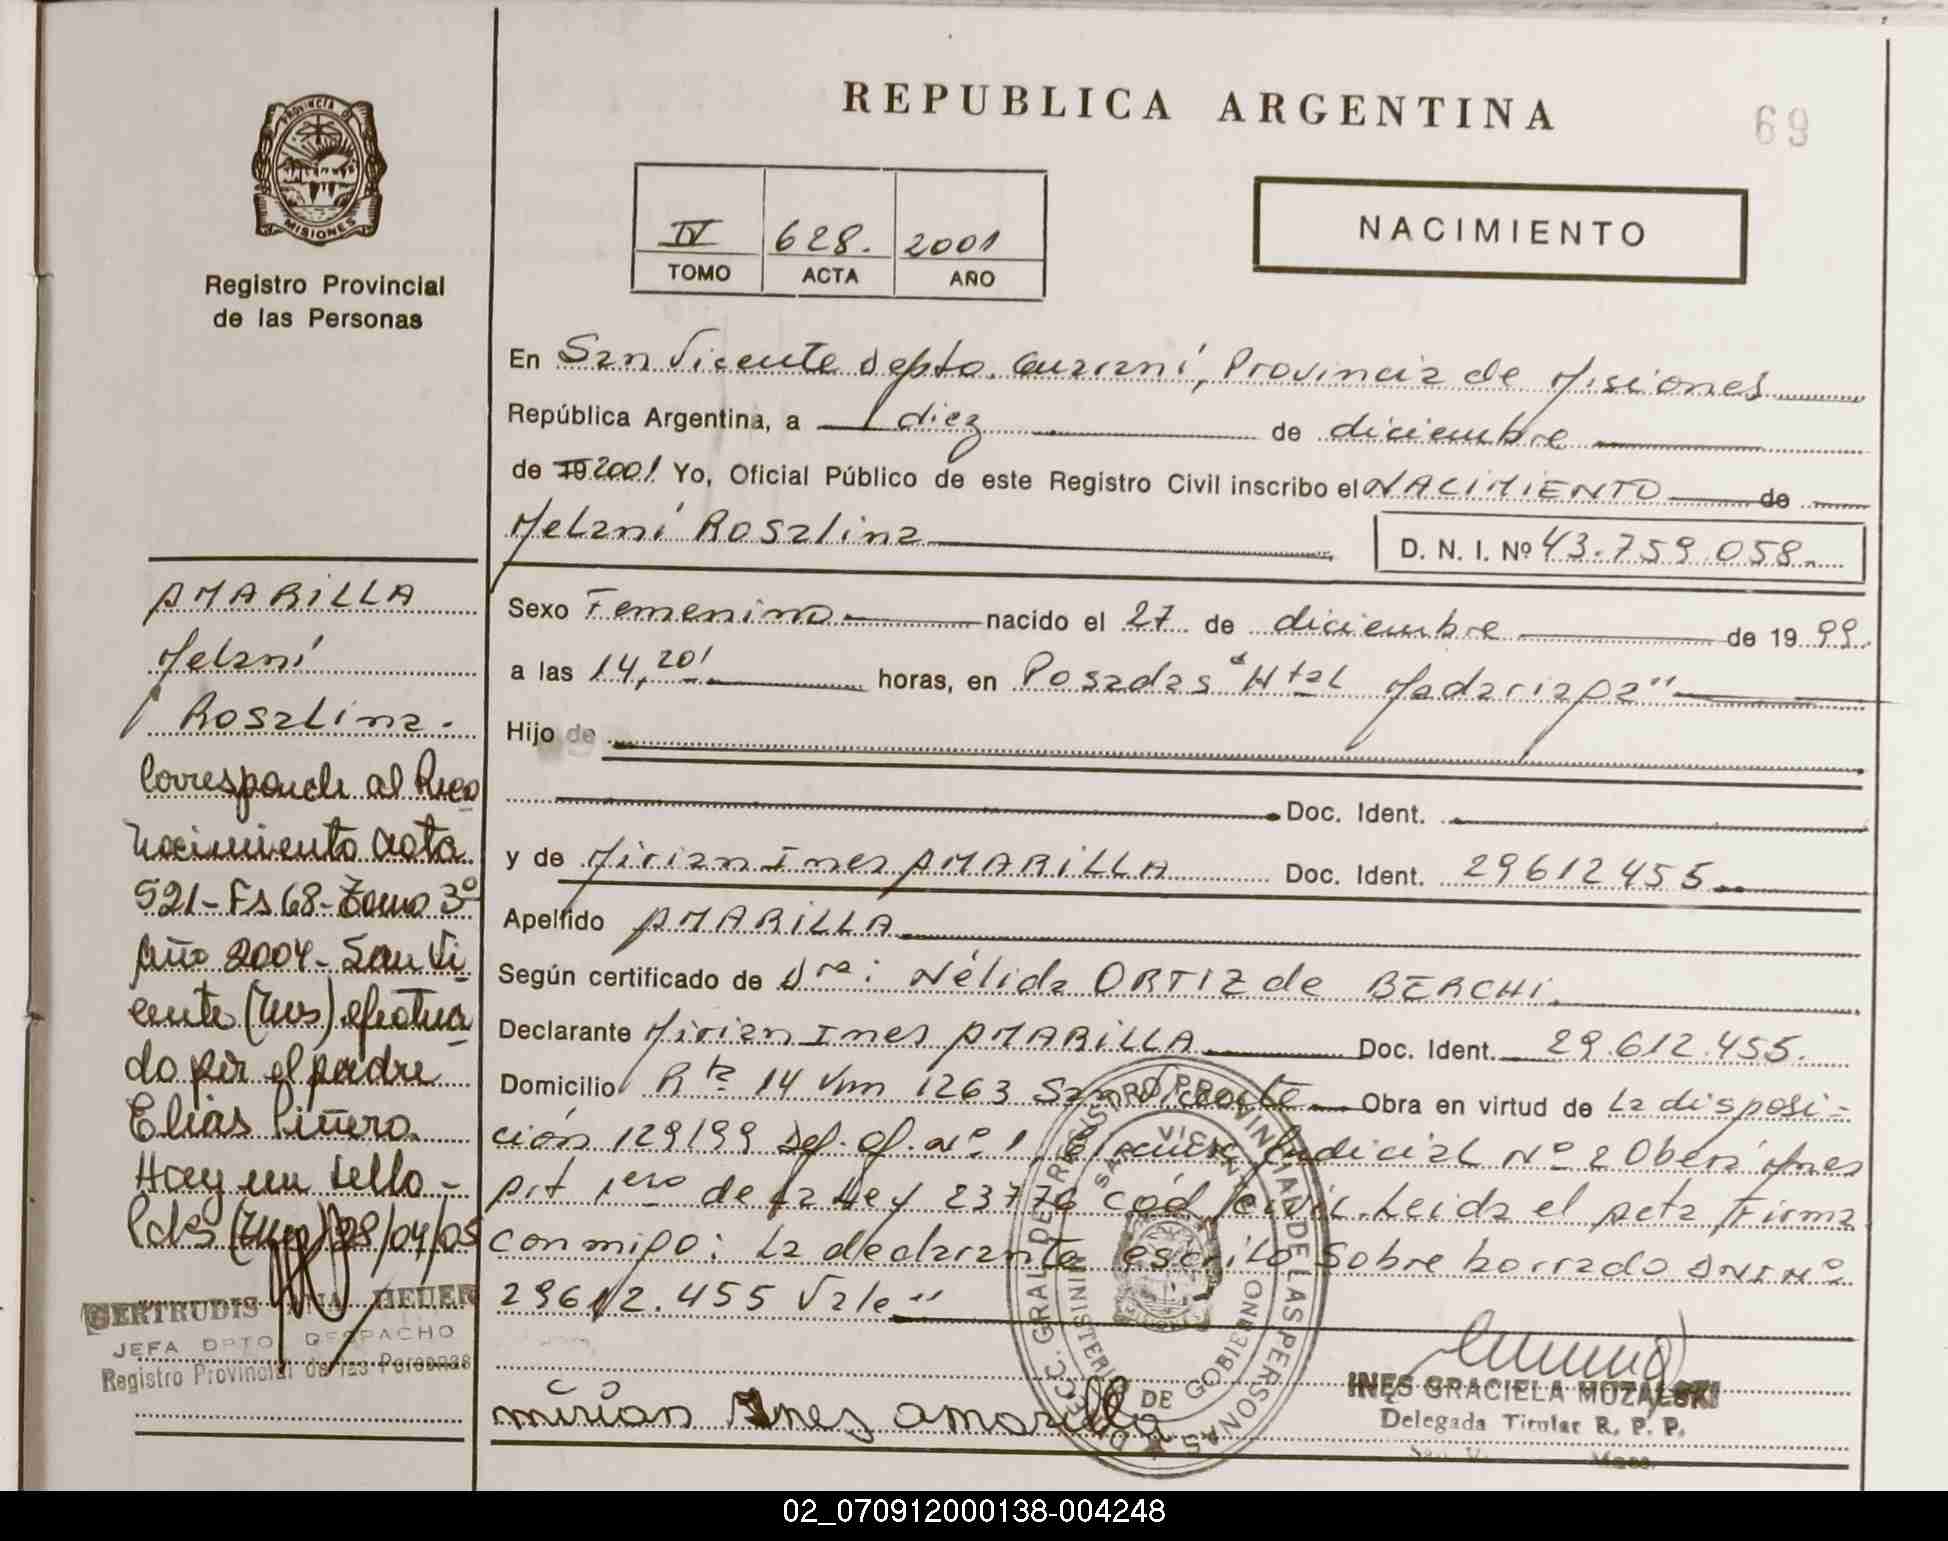 PROVINCIA DE
MISIONES
Registro Provincial
de las Personas
REPUBLICA ARGENTINA
69
IV 628. 2001
TOMO ACTA AÑO
NACIMIENTO
En San Vicente Depto. Guaraní, Provincia de Misiones
República Argentina, a diez de diciembre
de 19 2001 Yo, Oficial Público de este Registro Civil inscribo el NACIMIENTO de
Melaní Rosalina
D. N. I. Nº 43.759.058.
Sexo Femenino nacido el 27 de diciembre de 19 99.
a las 14,20' horas, en Posadas "Htal Madariaga"
Hijo de
Doc. Ident.
y de Mirian Ines AMARILLA Doc. Ident. 29612455
Apellido AMARILLA
Según certificado de Dra: Nélida ORTIZ de BERCHI.
Declarante Mirian Ines AMARILLA Doc. Ident. 29.612.455.
Domicilio Rta 14 Km 1263 San Vicente Obra en virtud de La disposi-
ción 129/99 Def. of. Nº 1, Judicial Nº 2 Oberá Mnes
Art 1ero de La Ley 23776 Cód. Civil. Leida el Acta Firma
conmigo: La declaranta escrito Sobre borrado DNI Nº
29612.455 Vale"
mirian Ines amarilla
INES GRACIELA MUZALSKI
Delegada Titular R. P. P.
DIRECC. GRAL DE REGISTRO PROVINCIAL DE LAS PERSONAS
SAN VICENTE
MINISTERIO DE GOBIERNO
AMARILLA
Melaní
Rosalina.
Corresponde al Reco
nocimiento Acta
521-Fs 68-Tomo 3º
Año 2004-San Vi
cente (Mns) efectua
do por el padre
Elías Piñero.
Hay un sello-
Pdas (Mns) 28/04/05
GERTRUDIS ANA HEUER
JEFA DPTO DESPACHO
Registro Provincial de las Personas
02_070912000138-004248